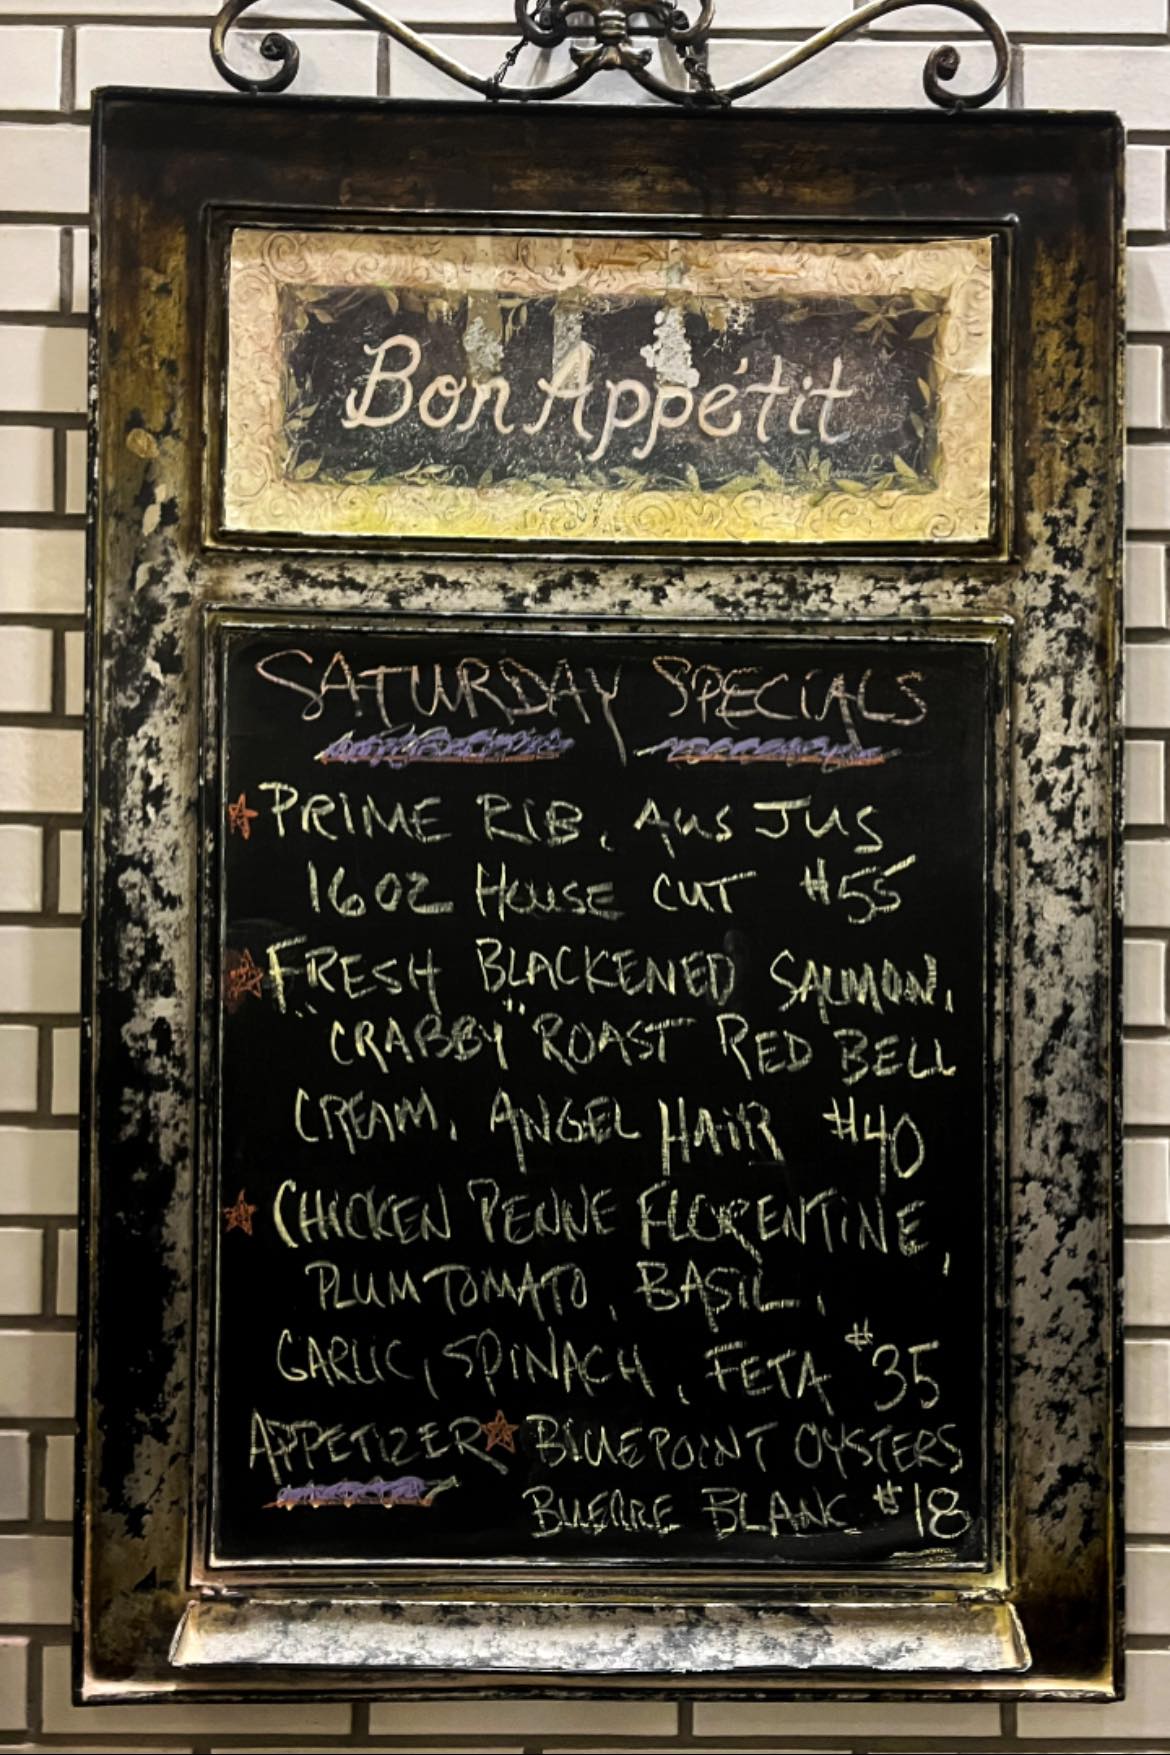 Bon Appétit
SATURDAY SPECIALS
PRIME RIB, Aus JUS
16OZ HOUSE CUT $55
FRESH BLACKENED SALMON,
"CRABBY" ROAST RED BELL
CREAM, ANGEL HAIR $40
CHICKEN PENNE FLORENTINE,
PLUM TOMATO, BASIL,
GARLIC, SPINACH, FETA $35
APPETIZER BLUEPOINT OYSTERS
BUERRE BLANC $18